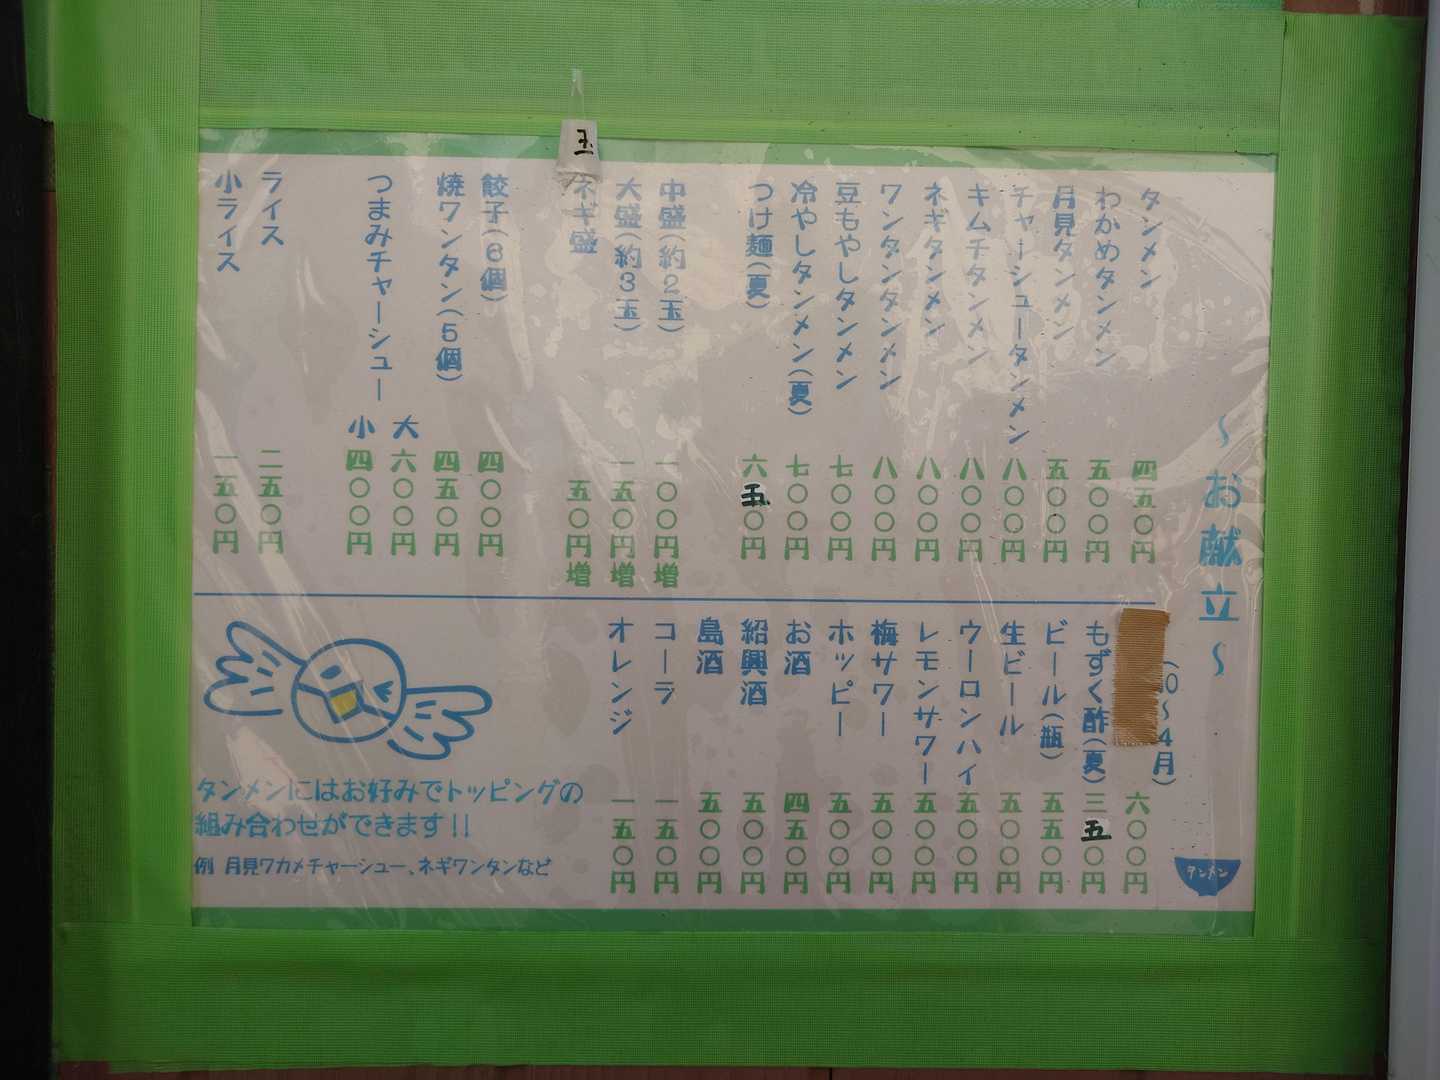 ～お献立～
タンメン 四五〇円
わかめタンメン 五〇〇円
月見タンメン 五〇〇円
チャーシュータンメン 八〇〇円
キムチタンメン 八〇〇円
ネギタンメン 八〇〇円
ワンタンタンメン 八〇〇円
豆もやしタンメン 七〇〇円
冷やしタンメン(夏) 七〇〇円
つけ麺(夏) 六五〇円
中盛(約2玉) 一〇〇円増
大盛(約3玉) 一五〇円増
玉
ネギ盛 五〇円増
餃子(6個) 四〇〇円
焼ワンタン(5個) 四五〇円
つまみチャーシュー 大 六〇〇円
小 四〇〇円
ライス 二五〇円
小ライス 一五〇円
(10～4月) 六〇〇円
もずく酢(夏) 三五〇円
ビール(瓶) 五五〇円
生ビール 五〇〇円
ウーロンハイ 五〇〇円
レモンサワー 五〇〇円
梅サワー 五〇〇円
ホッピー 五〇〇円
お酒 四五〇円
紹興酒 五〇〇円
島酒 五〇〇円
コーラ 一五〇円
オレンジ 一五〇円
タンメンにはお好みでトッピングの
組み合わせができます!!
例 月見ワカメチャーシュー、ネギワンタンなど
タンメン